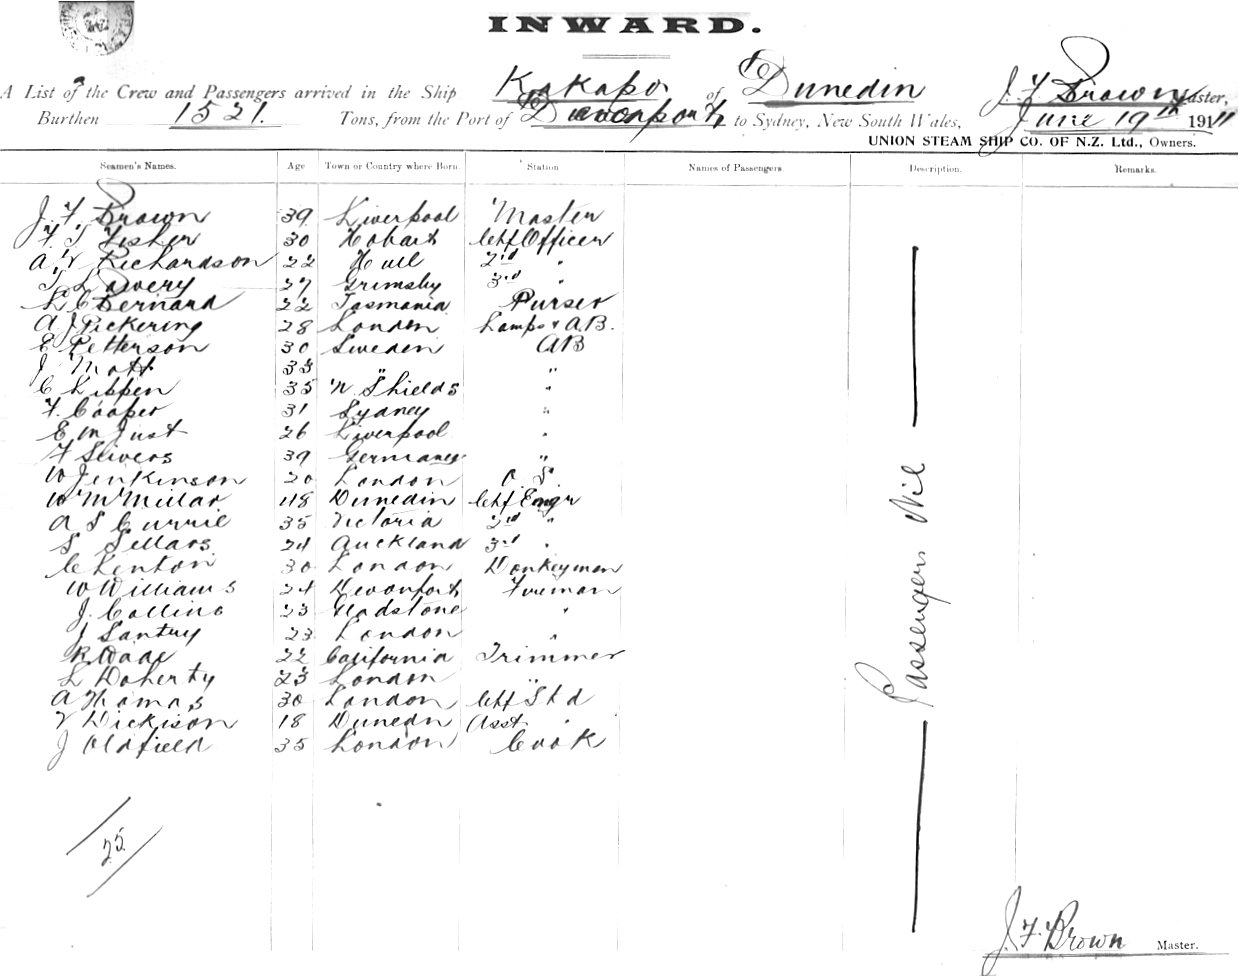 INWARD.
A List of the Crew and Passengers arrived in the Ship Kakapo of Dunedin J. F. Brown Master,
Burthen 1521. Tons, from the Port of Devonport to Sydney, New South Wales, June 19th 1911
UNION STEAM SHIP CO. OF N.Z. Ltd., Owners.
Seamen's Names. Age Town or Country where Born. Station Names of Passengers. Description. Remarks.
J. F. Brown 39 Liverpool Master
F T Fisher 30 Hobart Chf Officer
A V Richardson 22 Hull 2nd "
T L Lavery 27 Grimsby 3rd "
L C Bernard 22 Tasmania Purser
A J Pickering 28 London Lamps & AB.
E Petterson 30 Sweden AB
J Mott 33 " "
C Lippen 35 N Shields "
F. Cooper 31 Sydney "
E M Just 26 Liverpool "
F Seivers 39 Germany "
W Jenkinson 20 London O. S.
W McMillar 48 Dunedin Chf Engr
A S Currie 35 Victoria 2nd "
S Sellars 24 Auckland 3rd "
C Lenton 30 London Donkeyman
W Williams 24 Devonport Fireman
J. Collins 23 Gladstone "
J Santry 23 London "
R Wade 22 California Trimmer
L Doherty 23 London "
A Thomas 30 London Chf Std
V Dickison 18 Dunedn Asst "
J Oldfield 35 London Cook
Passengers Nil
25
J. F. Brown Master.